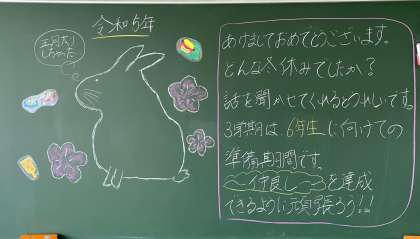 令和5年
あけましておめでとうございます。
どんな冬休みでしたか?
話を聞かせてくれるとうれしいです。
3学期は、6年生に向けての
準備期間です。
〜仲良し〜を達成
できるように頑張ろう!!